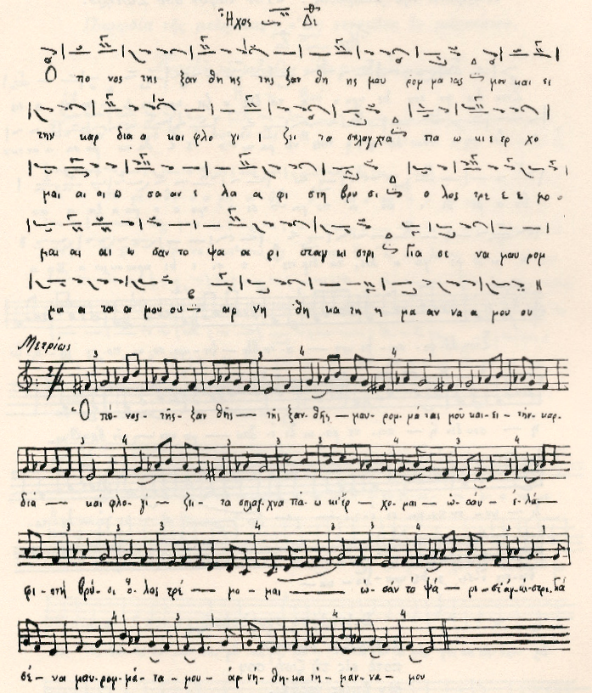 Ἦχος Δι
Ο πο νος της ξαν θη ης της ξαν θη ης μου ρομ μα τας μου και ει
την καρ δια α και φλο γι ι ζει τα σπλαγχνα πα ω κι ερ χο
μαι αι αι ω σα αν ε λα α φι στη βρυ σι ο λος τρε ε ε μο ο
μαι αι αι ω σαν το ψα α ρι σταγ κι στρι Για σε να μαυ ρομ
μα α τα α μου ου αρ νη θη κα τη η μα αν να α μου ου
Μετρίως
Ὁ πό-νος-τῆς-ξαν θῆς-τῆς ξαν-θῆς-μου-ρομ-μά ται μοῦ καὶ-ει-τήν-καρ-
διά - καί φλο-γί - ζει-τα σπλαγ-χνα πά-ω κι'ἔρ-χο-μαι-ὡ-σάν-ἐ-λά-
φι-στή βρύ-σι ὅ-λος τρέ-μο-μαι ὡ-σαν τό ψά-ρι-στ' ἀγ-κί-στρι. Γιά
σέ-να μαυ-ρομ-μά-τα-μου-ἀρ-νή-θη-κα τή-μαν-να-μου